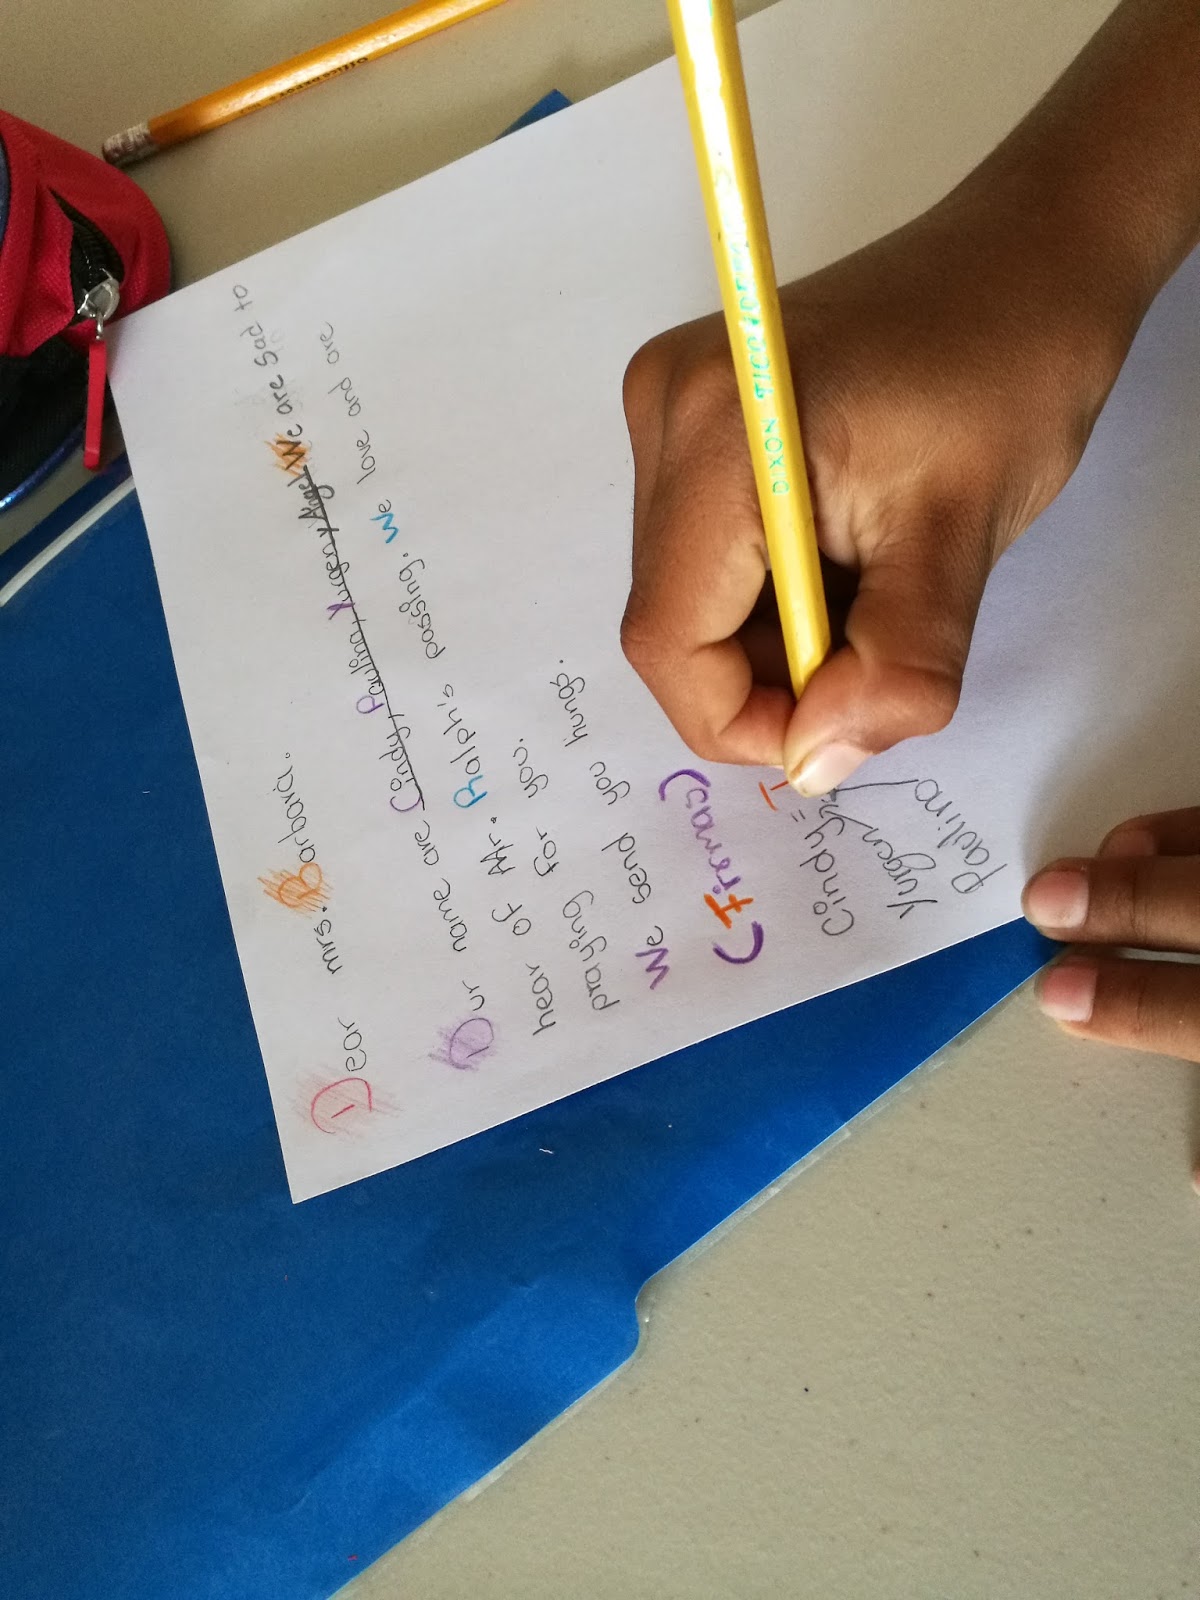 Dear mrs. Barbara.
Our name are Cindy, Paulina, Yurgen y Angel We are Sad to
hear of Mr. Ralph's passing. We love and are
praying For you.
We send you hungs.
(Firmas)
Cindy =
Yurgen
Paulina
DIXON TICONDEROGA